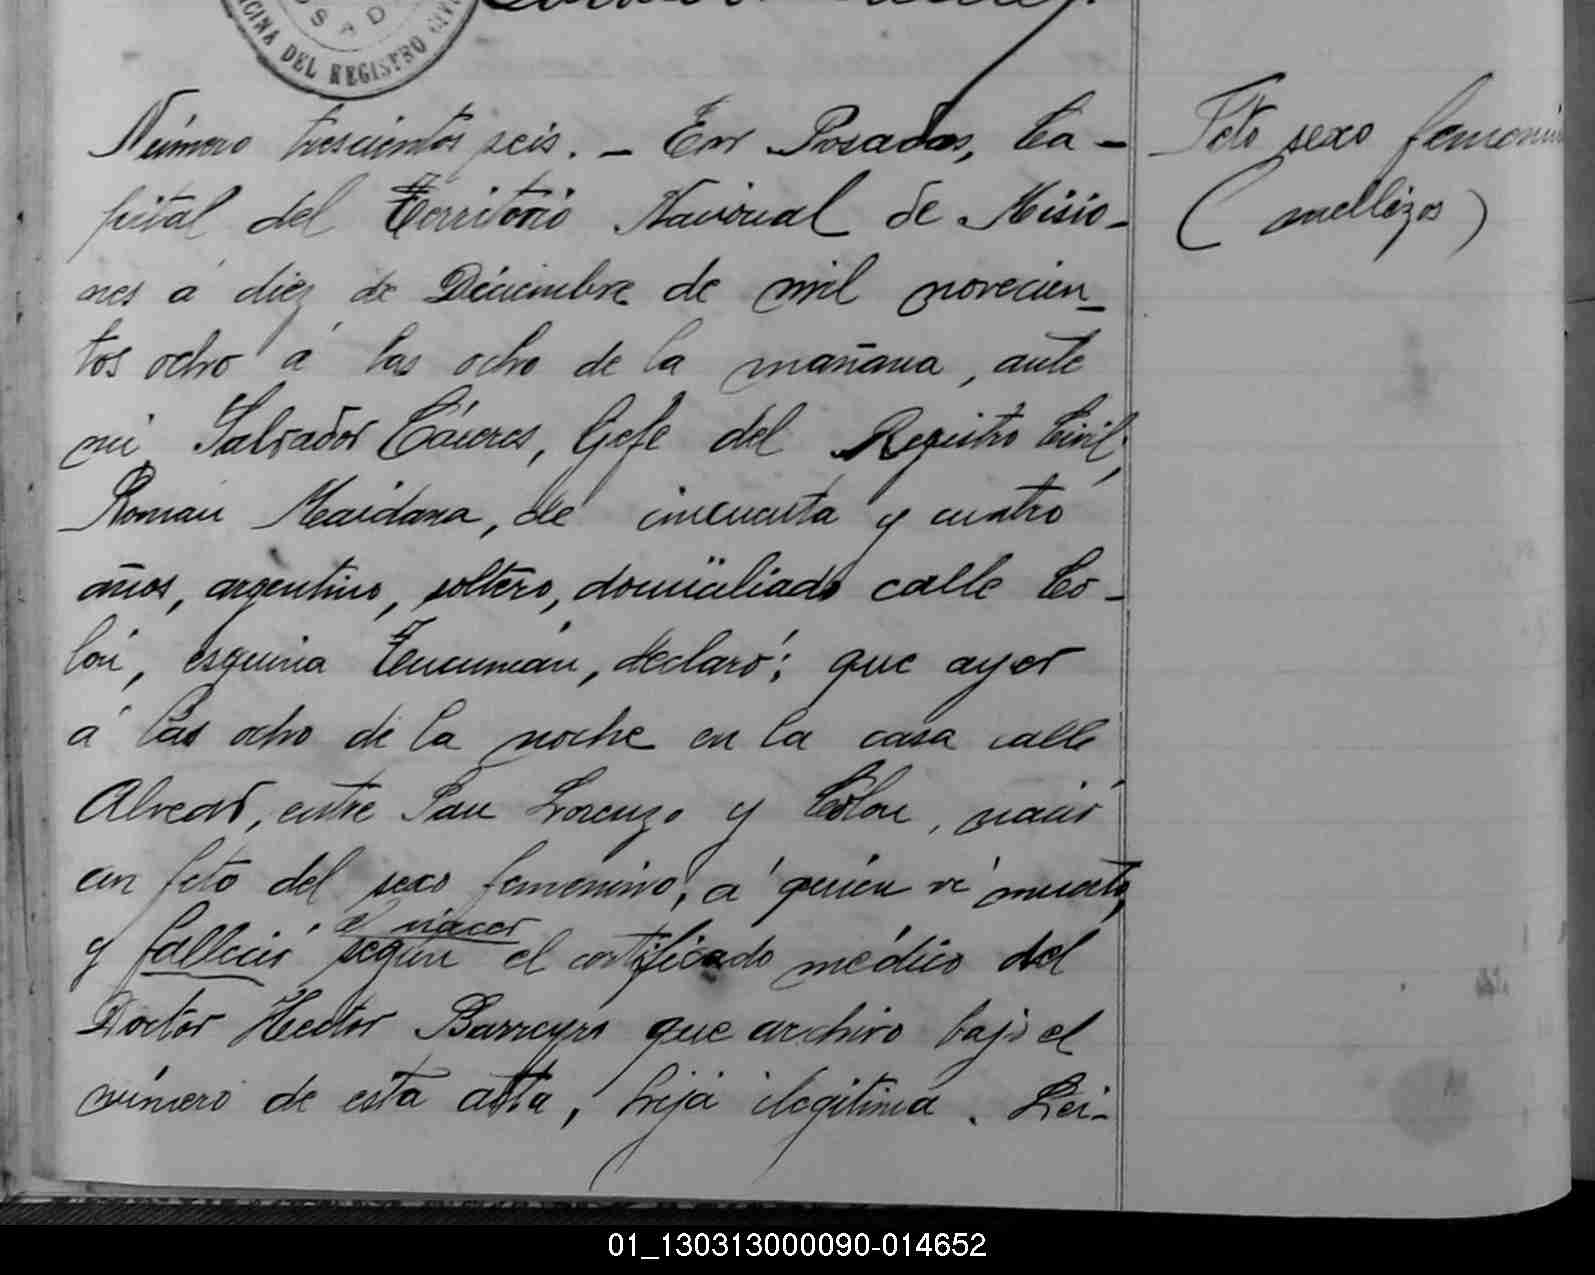 OFICINA DEL REGISTRO CIVIL
Número trescientos seis. - En Posadas, Ca-
pital del Territorio Nacional de Misio-
nes á diez de Diciembre de mil novecien-
tos ocho á las ocho de la mañana, ante
mi Salvador Cáceres, Gefe del Registro Civil,
Roman Maidana, de cincuenta y cuatro
años, argentino, soltero, domiciliado calle Co-
lón, esquina Tucumán, declaró: que ayer
á las ocho de la noche en la casa calle
Alvear, entre San Lorenzo y Colon, nació
un feto del sexo femenino, á quien vi muerto,
al nacer
y falleció según el certificado médico del
Doctor Hector Barreyro que archivo bajo el
número de esta acta, hija ilegítima. Lei-
Feto sexo femenino
(mellizos)
01_130313000090-014652